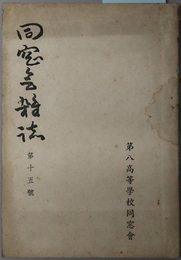 同窓會雜誌
第十五號
第八高等學校同窓會